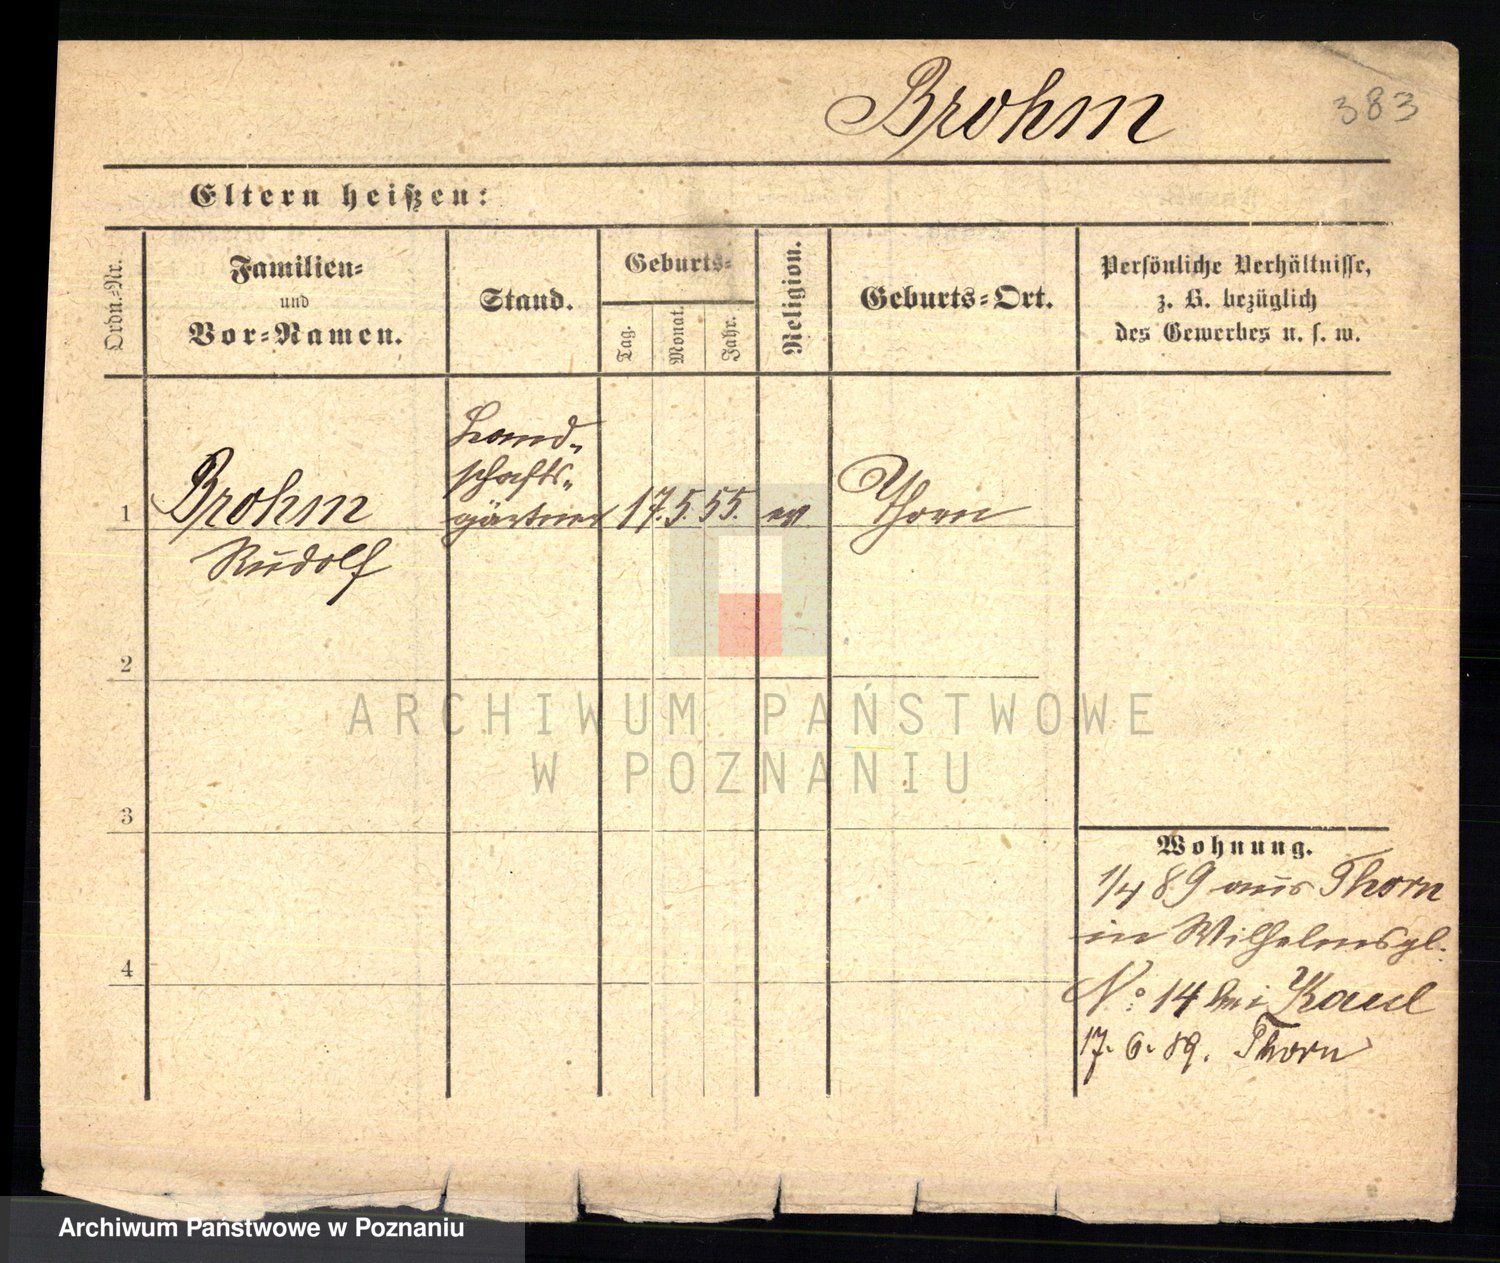 Brohm
383
Eltern heißen:
Ordn.-Nr.
Familien-
und
Vor-Namen.
Stand.
Geburts-
Tag.
Monat.
Jahr.
Religion.
Geburts-Ort.
Persönliche Verhältnisse,
z. B. bezüglich
des Gewerbes u. s. w.
1
Brohm
Rudolf
Land-
schafts-
gärtner
17. 5. 55.
ev
Thorn
2
3
4
Wohnung.
1/4 89 aus Thorn
in Wilhelmspl.
No. 14 bei
17. 6. 89. Thorn
ARCHIWUM PAŃSTWOWE
W POZNANIU
Archiwum Państwowe w Poznaniu